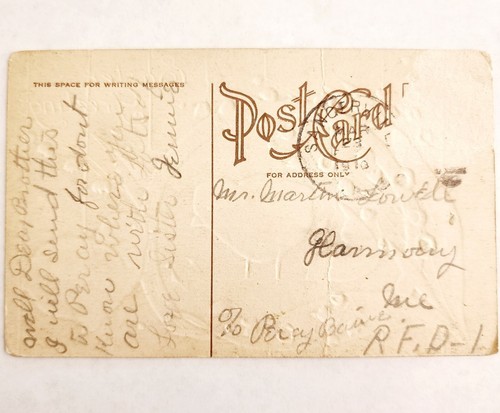 THIS SPACE FOR WRITING MESSAGES
Well Dear Brother
I will send this
to Percy for dont
know where you
are with lots
Love Sister Jennie
Post Card
FOR ADDRESS ONLY
1910
Mr. Martin
Harmony
Me
To Percy
R.F.D-1